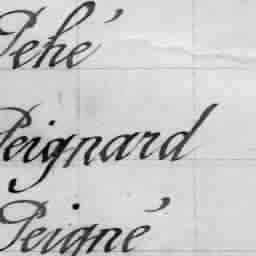 Pehé
Peignard
Peigné